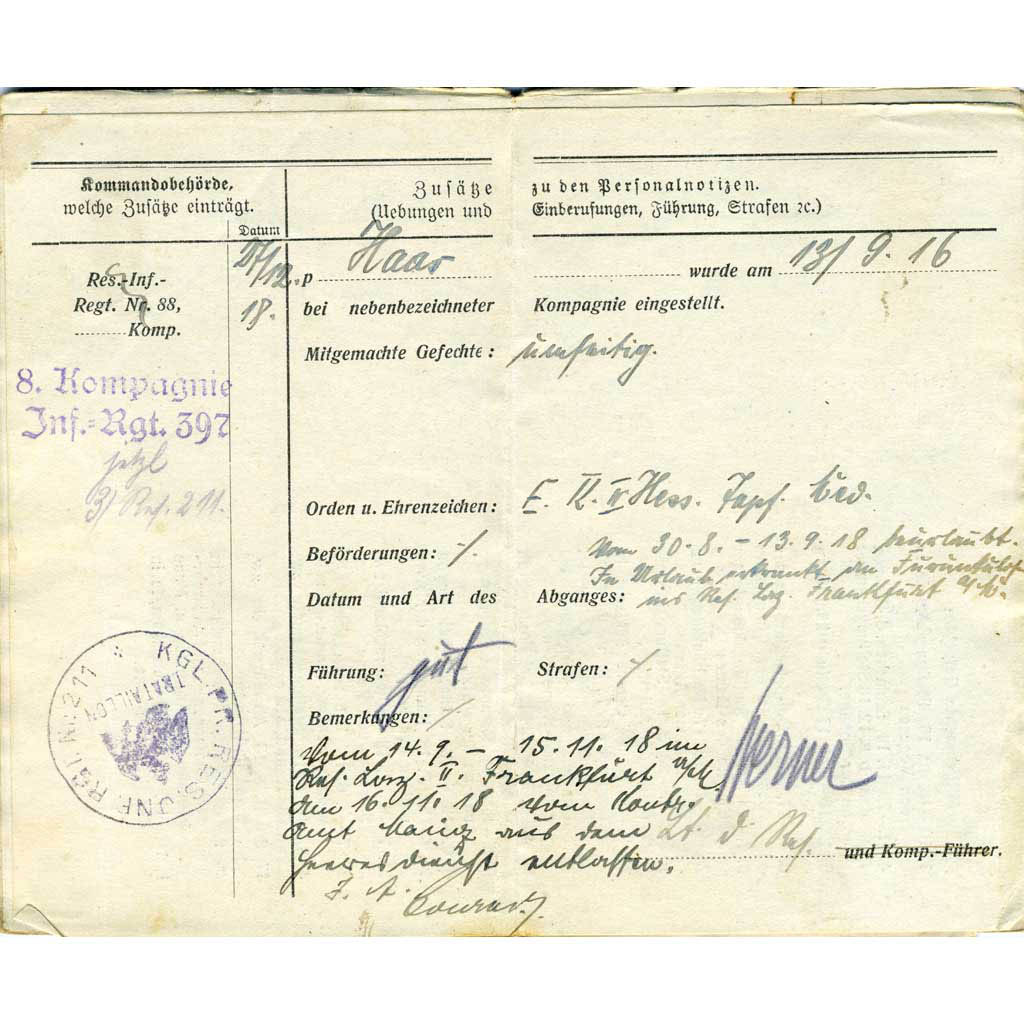 Kommandobehörde,
welche Zusätze einträgt.
Datum
Zusätze zu den Personalnotizen.
(Uebungen und Einberufungen, Führung, Strafen ꝛc.)
Res.-Inf.-
Regt. Nr. 88,
Komp.
27/12.
18.
p Haas wurde am 13/9.16
bei nebenbezeichneter Kompagnie eingestellt.
Mitgemachte Gefechte: umseitig.
8. Kompagnie
Inf.-Rgt. 397
jetzt
3/Res. 211.
Orden u. Ehrenzeichen: E. K. II Hess. Tapf. Med.
Beförderungen: -/.
Vom 30.8. – 13.9.18 beurlaubt.
In Urlaub erkrankt an Furunkulose
Datum und Art des Abganges: ins Res. Laz. Frankfurt a/M.
Führung: gut Strafen: /.
Bemerkungen: /.
Vom 14.9. – 15.11.18 im
Res. Laz. II. Frankfurt a/M.
am 16.11.18 vom
Amt Mainz aus dem
Heeresdienst entlassen.
Werner
Lt. d. Res.
und Komp.-Führer.
KGL. PR. RES. INF. RGT. Nr. 211 *